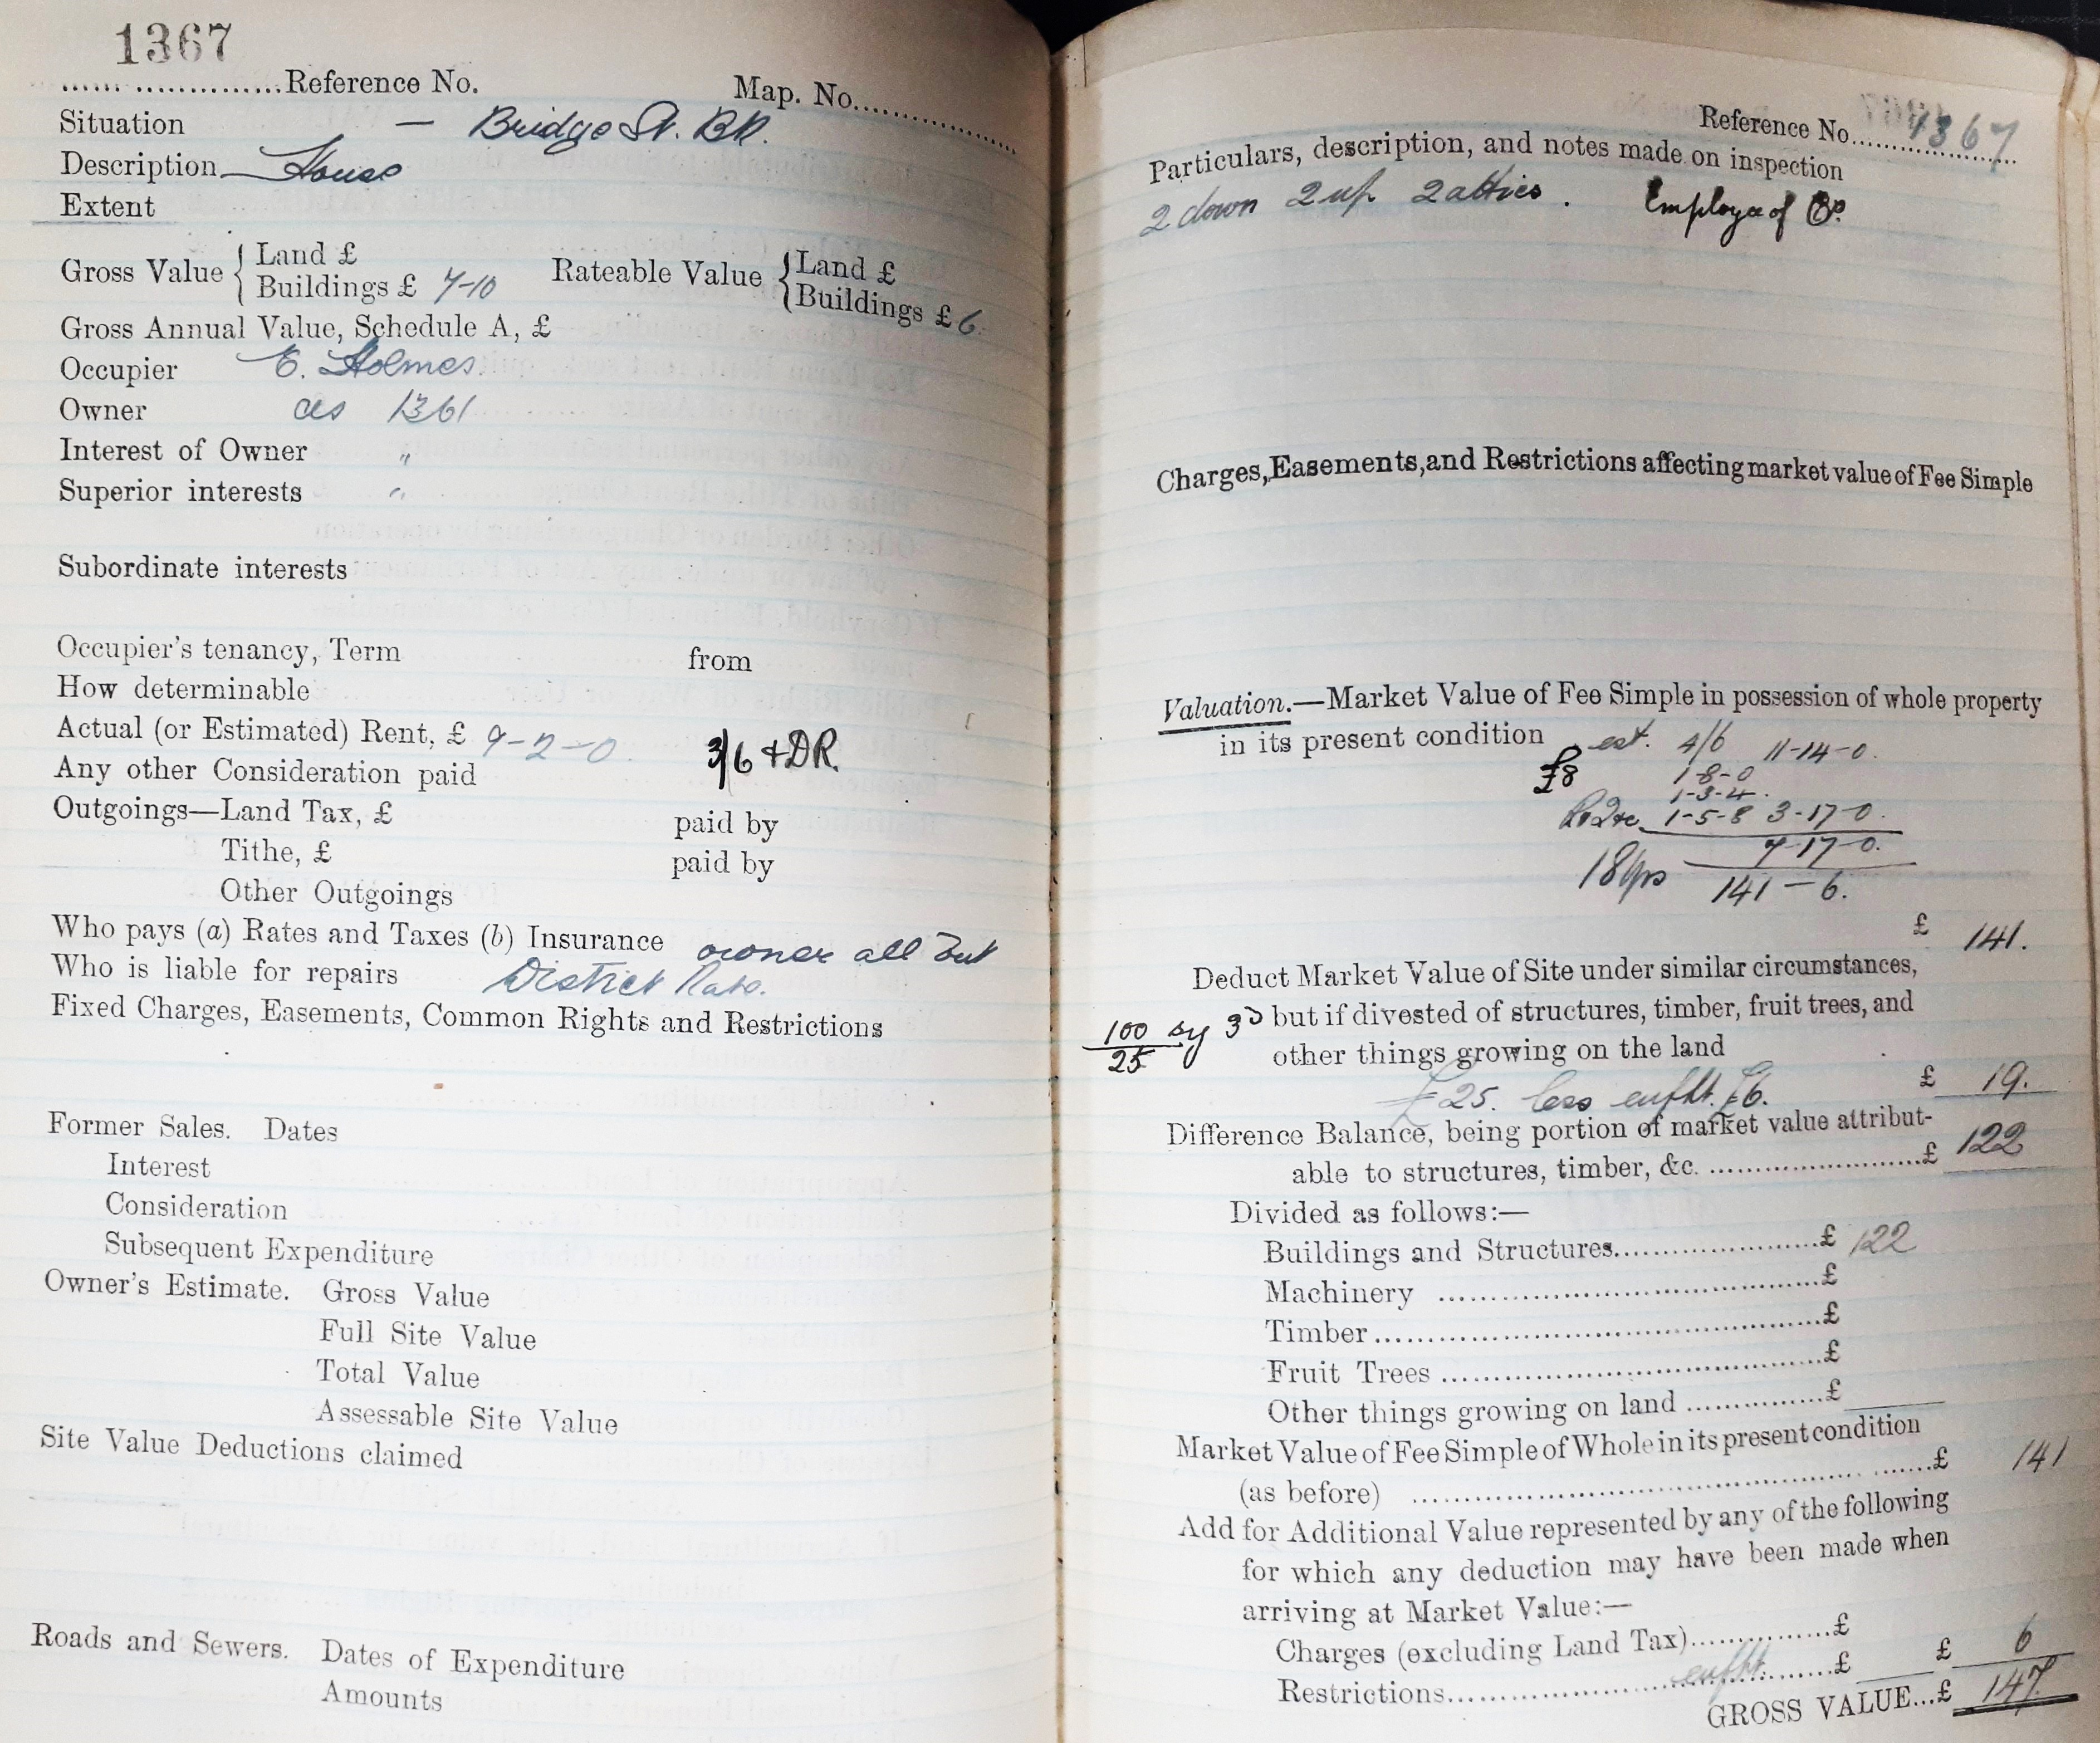 1367
...... ...............Reference No. Map. No...................
Situation — Bridge St. BR.
Description House
Extent
Gross Value { Land £
Buildings £ 7-10 Rateable Value { Land £
Buildings £ 6.
Gross Annual Value, Schedule A, £
Occupier E. Holmes.
Owner as 1361
Interest of Owner "
Superior interests "
Subordinate interests
Occupier's tenancy, Term from
How determinable
Actual (or Estimated) Rent, £ 9-2-0. 3/6 + DR.
Any other Consideration paid
Outgoings—Land Tax, £ paid by
Tithe, £ paid by
Other Outgoings
Who pays (a) Rates and Taxes (b) Insurance owner all but
Who is liable for repairs District Rate.
Fixed Charges, Easements, Common Rights and Restrictions
Former Sales. Dates
Interest
Consideration
Subsequent Expenditure
Owner's Estimate. Gross Value
Full Site Value
Total Value
Assessable Site Value
Site Value Deductions claimed
Roads and Sewers. Dates of Expenditure
Amounts
Reference No. 1367
Particulars, description, and notes made on inspection
2 down 2 up 2 attics. Employee of Co.
Charges, Easements, and Restrictions affecting market value of Fee Simple
Valuation.—Market Value of Fee Simple in possession of whole property
in its present condition est. 4/6 11-14-0.
£8 1-8-0
1-3-4.
1-5-8 3-17-0.
7-17-0.
18 yrs 141-6.
£ 141.
Deduct Market Value of Site under similar circumstances,
100/25 sy 3D but if divested of structures, timber, fruit trees, and
other things growing on the land
£25. less enfht. £6. £ 19.
Difference Balance, being portion of market value attribut-
able to structures, timber, &c. ........................£ 122
Divided as follows:—
Buildings and Structures.....................£ 122
Machinery .......................................£
Timber.............................................£
Fruit Trees .......................................£
Other things growing on land ...............£
Market Value of Fee Simple of Whole in its present condition
(as before) ..................................................£ 141
Add for Additional Value represented by any of the following
for which any deduction may have been made when
arriving at Market Value:—
Charges (excluding Land Tax)...............£
Restrictions..............enfht........£ £ 6
GROSS VALUE...£ 147.